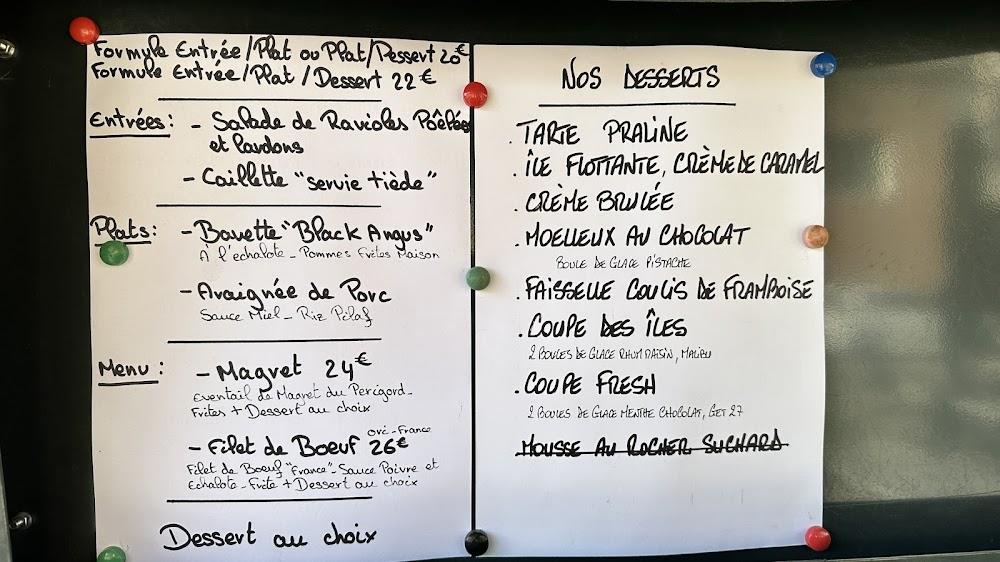 Formule Entrée/Plat ou Plat/Dessert 20€
Formule Entrée/Plat/Dessert 22€
Entrées: - Salade de Ravioles Poêlées
et lardons
- Caillette "servie tiède"
Plats: - Bavette "Black Angus"
À l'échalote - Pommes Frites Maison
- Araignée de Porc
Sauce Miel - Riz Pilaf
Menu: - Magret 24€
Eventail de Magret du Perigord -
Frites + Dessert au choix
- Filet de Boeuf 26€ ori-France
Filet de Boeuf "France" - Sauce Poivre et
Echalote - Frite + Dessert au choix
Dessert au choix
NOS DESSERTS
. TARTE PRALINE
. ÎLE FLOTTANTE, CRÈME DE CARAMEL
. CRÈME BRULÉE
. MOELLEUX AU CHOCOLAT
BOULE DE GLACE PISTACHE
. FAISSELLE COULIS DE FRAMBOISE
. COUPE DES ÎLES
2 BOULES DE GLACE RHUM RAISIN, MALIBU
. COUPE FRESH
2 BOULES DE GLACE MENTHE CHOCOLAT, GET 27
MOUSSE AU ROCHER SUCHARD